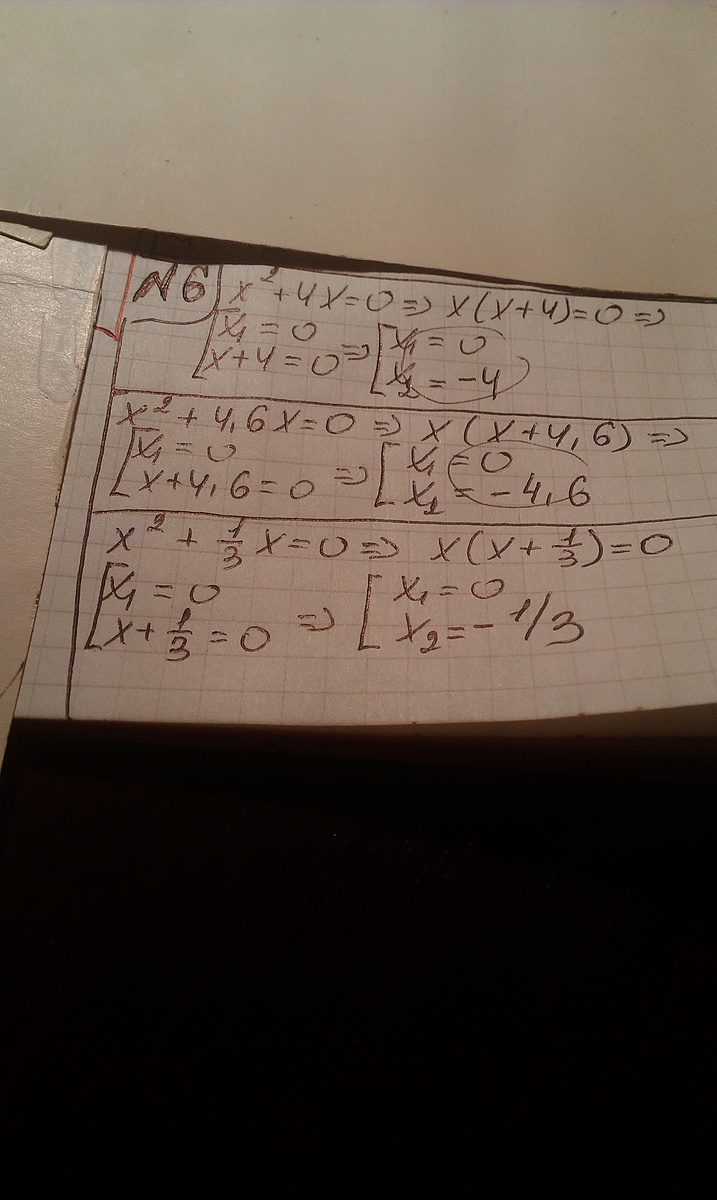 N6 x² + 4x = 0 => x(x+4) = 0 =>
[ x₁ = 0
[ x+4 = 0 => [ x₁ = 0
[ x₂ = -4
x² + 4,6x = 0 => x(x+4,6) =>
[ x₁ = 0
[ x+4,6 = 0 => [ x₁ = 0
[ x₂ = -4,6
x² + 1/3 x = 0 => x(x + 1/3) = 0
[ x₁ = 0
[ x + 1/3 = 0 => [ x₁ = 0
[ x₂ = -1/3